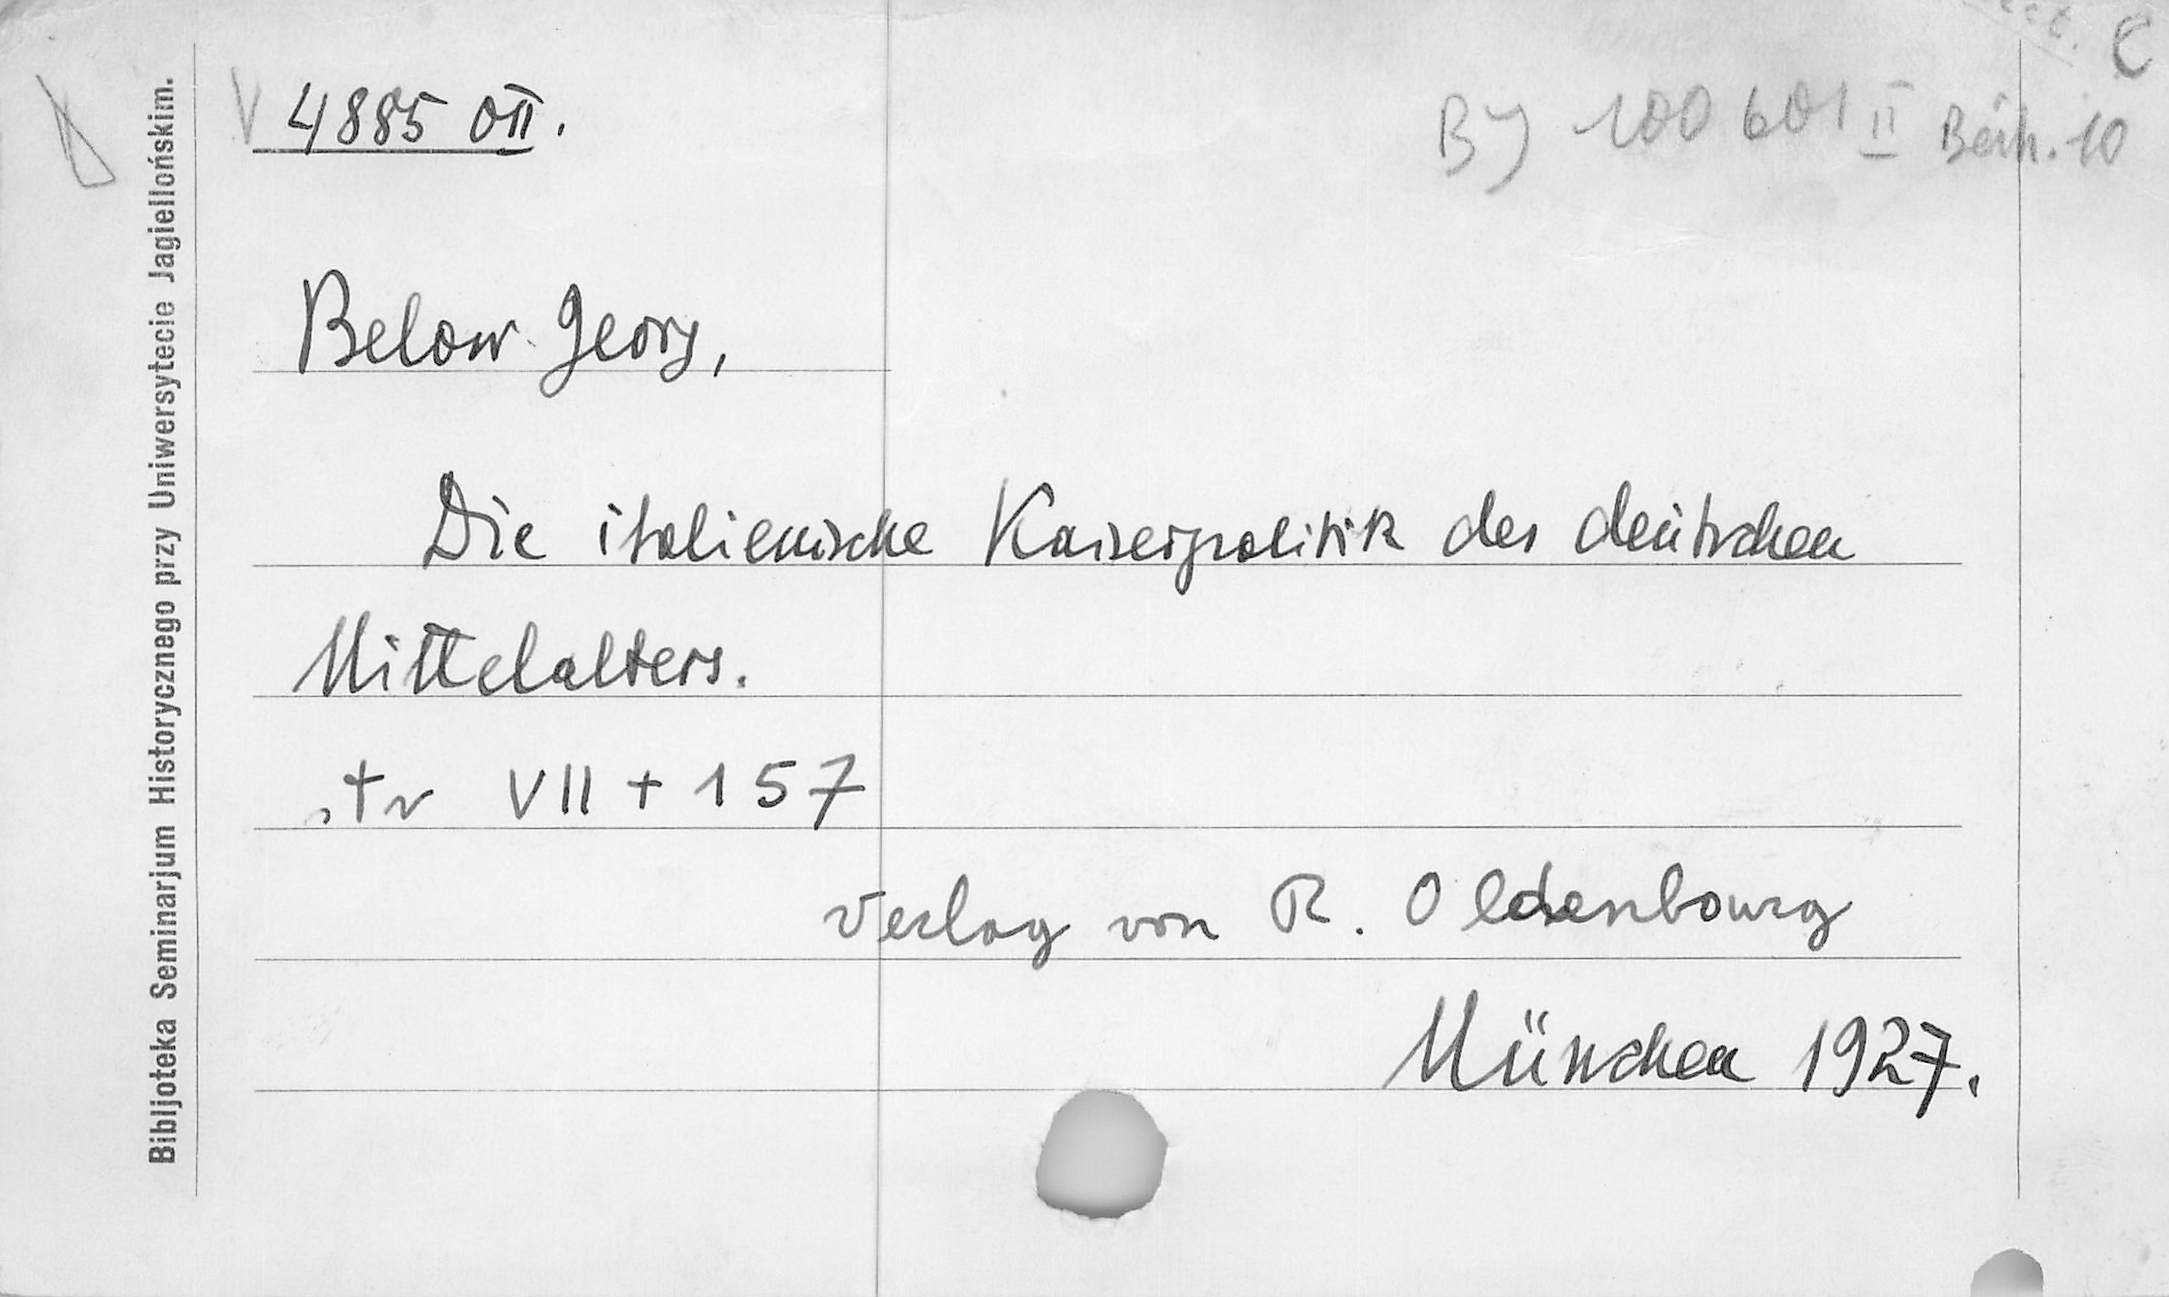 C
V 4885 OII.
BJ 100 601 II Beih. 10
Below Georg,
Die italienische Kaiserpolitik des deutschen
Mittelalters.
str VII + 157
Verlag von R. Oldenbourg
München 1927.
Bibljoteka Seminarjum Historycznego przy Uniwersytecie Jagiellońskim.